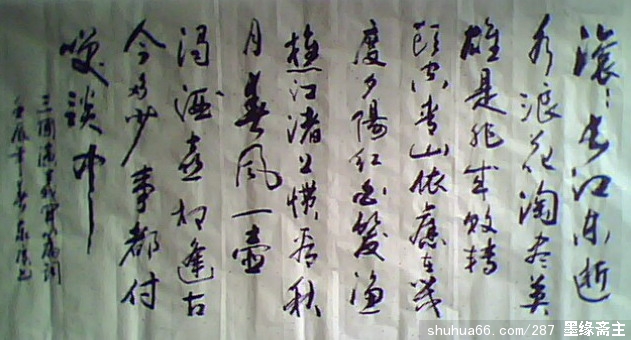 滚〻长江东逝
水浪花淘尽英
雄是非成败转
头空青山依旧在几
度夕阳红白发渔
樵江渚上惯看秋
月春风一壶
浊酒喜相逢古
今多少事都付
笑谈中
三国演义开篇词
壬辰年
shuhua66.com/287 墨缘斋主